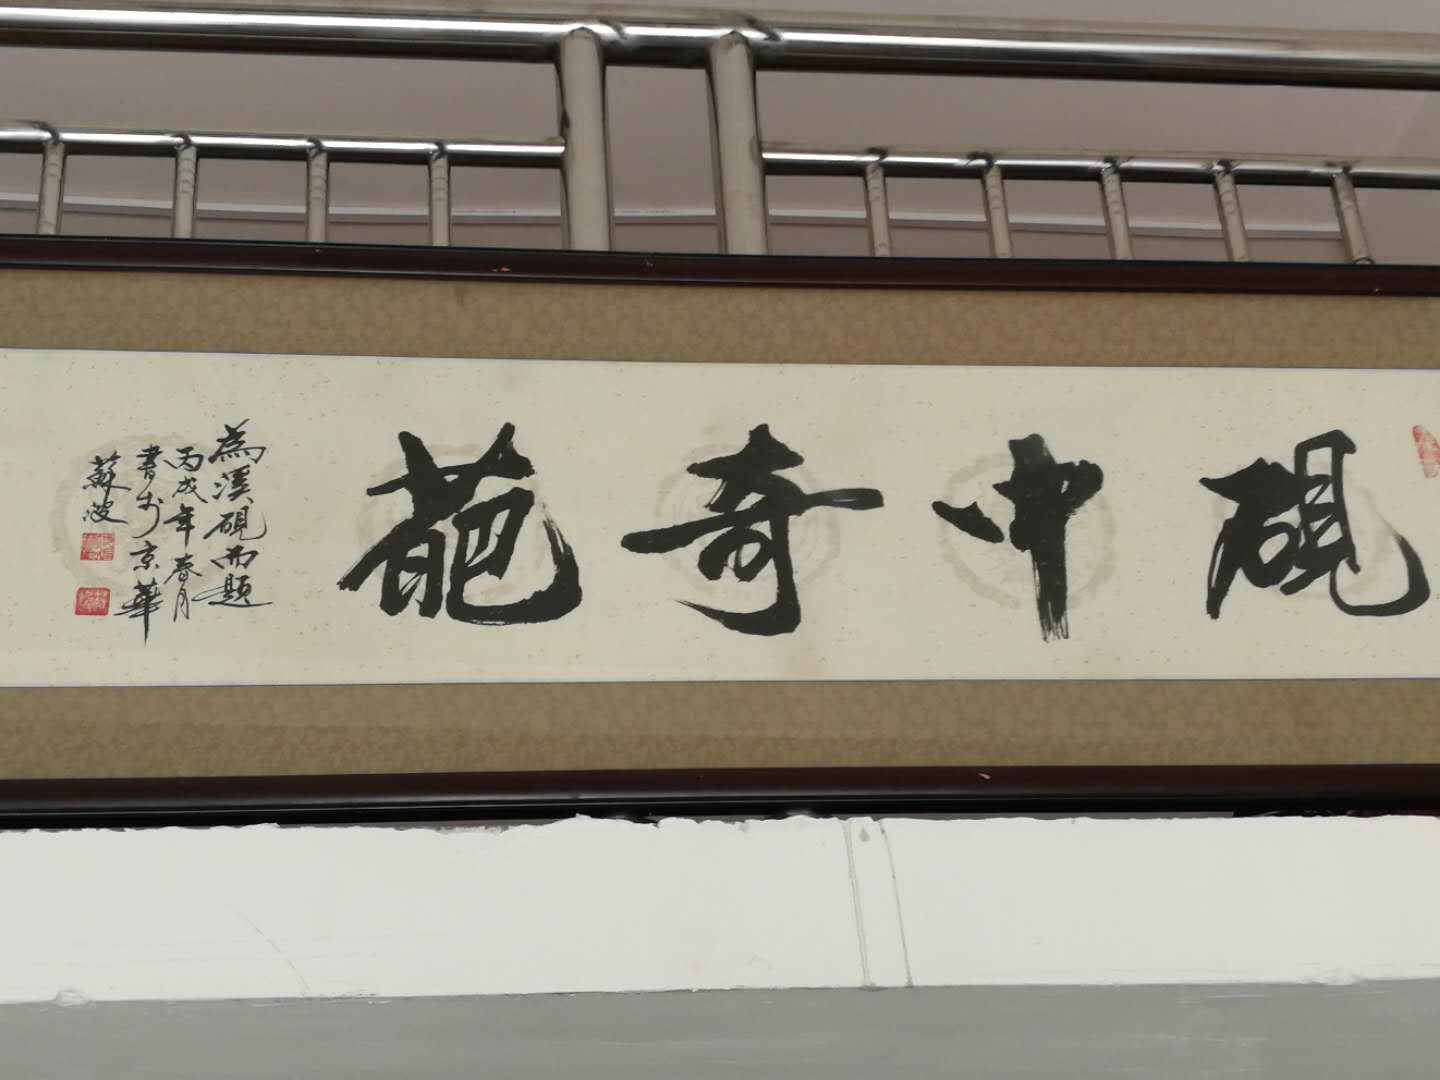 硯中奇葩
為溪硯而題
丙戌年春月
書於京華
蘇波